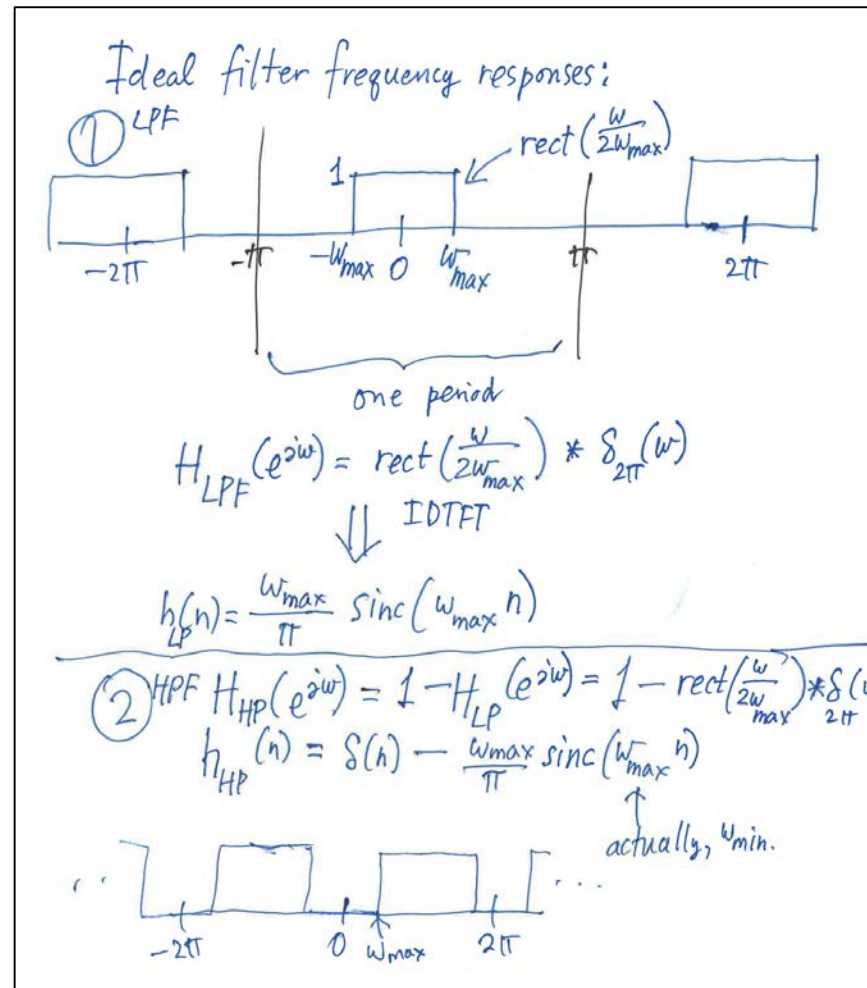 Ideal filter frequency responses:
① LPF
rect(w/2w_max)
1
-2π -π -w_max 0 w_max π 2π
one period
H_LPF(e^jw) = rect(w/2w_max) * δ_2π(w)
⇓ IDTFT
h_LP(n) = w_max/π sinc(w_max n)
② HPF H_HP(e^jw) = 1 - H_LP(e^jw) = 1 - rect(w/2w_max) * δ_2π(
h_HP(n) = δ(n) - w_max/π sinc(w_max n)
↑
actually, w_min.
.. ...
-2π 0 w_max 2π